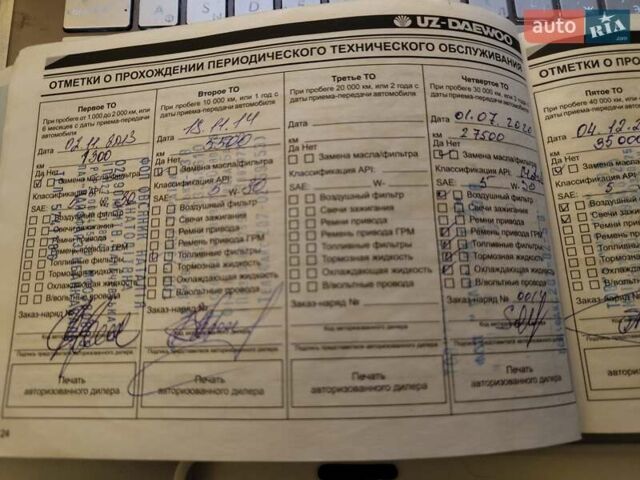 auto RIA.com
UZ-DAEWOO
ОТМЕТКИ О ПРОХОЖДЕНИИ ПЕРИОДИЧЕСКОГО ТЕХНИЧЕСКОГО ОБСЛУЖИВАНИЯ
ОТМЕТКИ О ПРО
Первое ТО
При пробеге от 1 000 до 2 000 км, или
6 месяцев с даты приема-передачи
автомобиля
Дата 02.11.2013
км 1300
Да Нет
Замена масла/фильтра
Классификация API:
SAE: W-30
Воздушный фильтр
Свечи зажигания
Ремни привода
Ремень привода ГРМ
Топливные фильтры
Тормозная жидкость
Охлаждающая жидкость
В/вольтные провода
Заказ-наряд №
Подпись представителя авторизованного дилера
Печать
авторизованного дилера
Второе ТО
При пробеге 10 000 км, или 1 год с
даты приема-передачи автомобиля
Дата 13.11.14
км 5500
Да Нет
Замена масла/фильтра
Классификация API:
SAE: 5 W-30
Воздушный фильтр
Свечи зажигания
Ремни привода
Ремень привода ГРМ
Топливные фильтры
Тормозная жидкость
Охлаждающая жидкость
В/вольтные провода
Заказ-наряд №
Подпись представителя авторизованного дилера
Печать
авторизованного дилера
Третье ТО
При пробеге 20 000 км, или 2 года с
даты приема-передачи автомобиля
Дата
км
Да Нет
Замена масла/фильтра
Классификация API:
SAE: W-
Воздушный фильтр
Свечи зажигания
Ремни привода
Ремень привода ГРМ
Топливные фильтры
Тормозная жидкость
Охлаждающая жидкость
В/вольтные провода
Заказ-наряд №
Код авторизованного дилера
Подпись представителя авторизованного дилера
Печать
авторизованного дилера
Четвертое ТО
При пробеге 30 000 км, или 3 года с
даты приема-передачи автомобиля
Дата 01.07.2020
км 27500
Да Нет
Замена масла/фильтра
Классификация API:
SAE: 5 W-30
Воздушный фильтр
Свечи зажигания
Ремни привода
Ремень привода ГРМ
Топливные фильтры
Тормозная жидкость
Охлаждающая жидкость
В/вольтные провода
Заказ-наряд №
Код авторизованного дилера
Подпись представителя авторизованного дилера
Печать
авторизованного дилера
Пятое ТО
При пробеге 40 000 км,
даты приема-передачи
Дата 04.12.2
км 35000
Да Нет
Замена масла
Классификация
SAE:
Воздушный
Свечи зажи
Ремни прив
Ремень пр
Топливные
Тормозная
Охлаждаю
В/вольтны
Заказ-наряд №
Печать
авторизованного
24